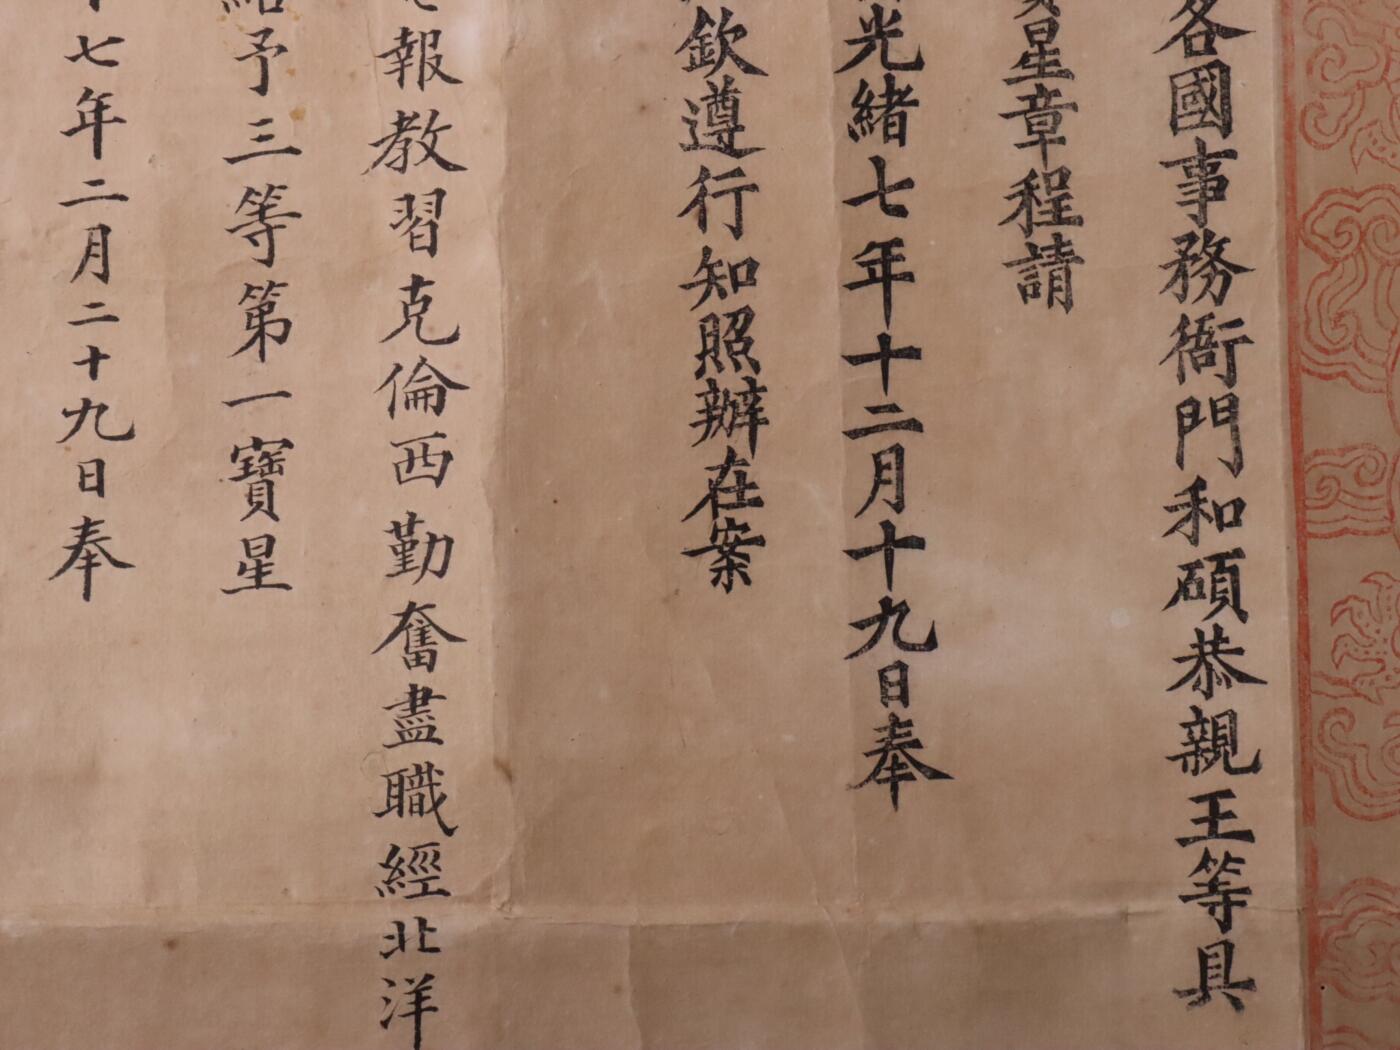 各國事務衙門和碩恭親王等具
寶星章程請
光緒七年十二月十九日奉
欽遵行知照辦在案
報教習克倫西勤奮盡職經北洋
給予三等第一寶星
七年二月二十九日奉